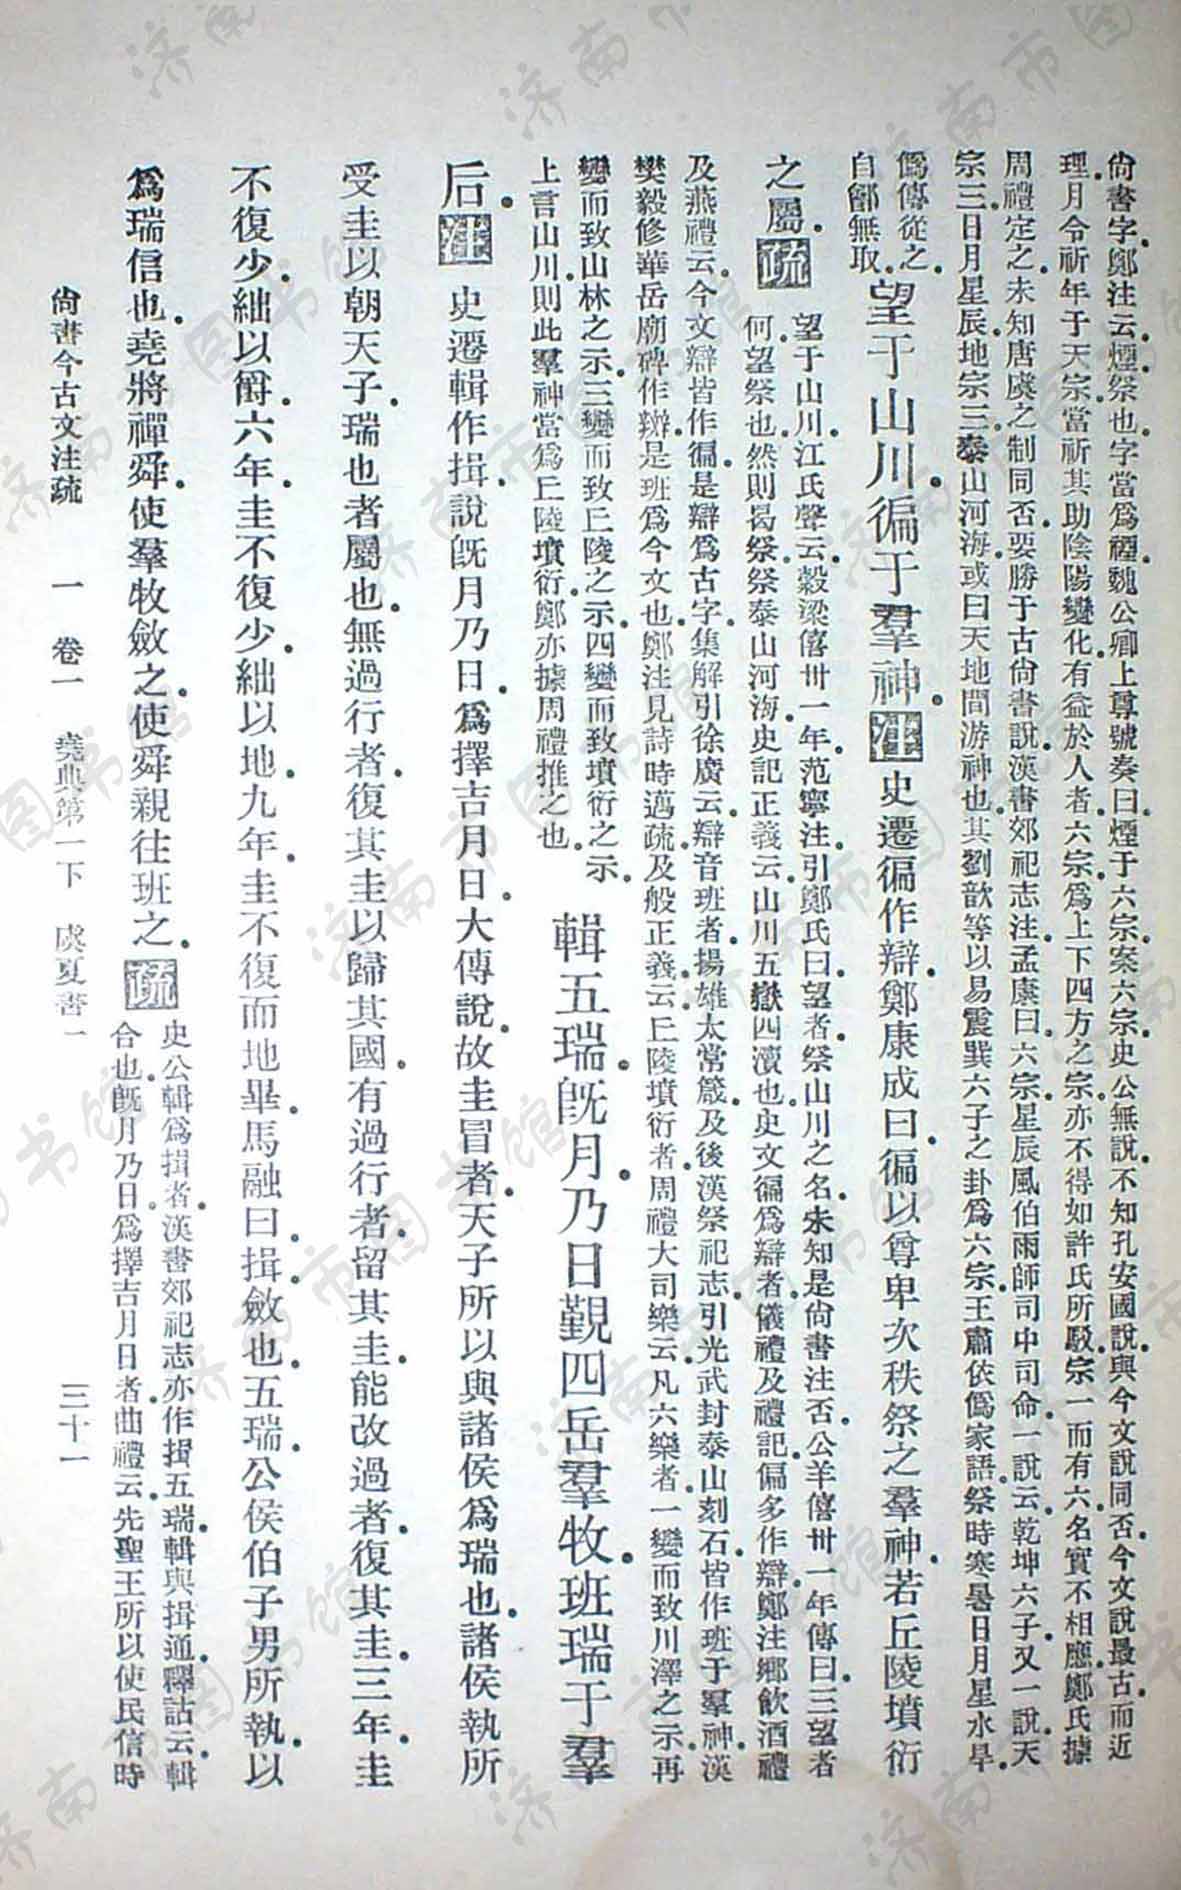 尙書字鄭注云煙祭也字當爲禋魏公卿上尊號奏曰煙于六宗案六宗史公無說不知孔安國說與今文說同否今文說最古而近
理月令祈年于天宗當祈其助陰陽變化有益於人者六宗爲上下四方之宗亦不得如許氏所駁宗一而有六名實不相應鄭氏據
周禮定之未知唐虞之制同否要勝于古尙書說漢書郊祀志注孟康曰六宗星辰風伯雨師司中司命一說云乾坤六子又一說天
宗三日月星辰地宗三泰山河海或曰天地間游神也其劉歆等以易震巽六子之卦爲六宗王肅依僞家語祭時寒暑日月星水旱
僞傳從之
自鄶無取
望于山川徧于羣神注史遷徧作辯鄭康成曰徧以尊卑次秩祭之羣神若丘陵墳衍
之屬疏
望于山川江氏聲云穀梁僖卅一年范寧注引鄭氏曰望者祭山川之名未知是尙書注否公羊僖卅一年傳曰三望者
何望祭也然則曷祭祭泰山河海史記正義云山川五嶽四瀆也史文徧爲辯者儀禮及禮記徧多作辯鄭注鄉飮酒禮
及燕禮云今文辯皆作徧是辯爲古字集解引徐廣云辯音班者揚雄太常箴及後漢祭祀志引光武封泰山刻石皆作班于羣神漢
樊毅修華岳廟碑作辨是班爲今文也鄭注見詩時邁疏及般正義云丘陵墳衍者周禮大司樂云凡六樂者一變而致川澤之示再
變而致山林之示三變而致丘陵之示四變而致墳衍之示
上言山川則此羣神當爲丘陵墳衍鄭亦據周禮推之也
輯五瑞旣月乃日覲四岳羣牧班瑞于羣
后注史遷輯作揖說旣月乃日爲擇吉月日大傳說故圭冒者天子所以與諸侯爲瑞也諸侯執所
受圭以朝天子瑞也者屬也無過行者復其圭以歸其國有過行者留其圭能改過者復其圭三年圭
不復少絀以爵六年圭不復少絀以地九年圭不復而地畢馬融曰揖斂也五瑞公侯伯子男所執以
爲瑞信也堯將禪舜使羣牧斂之使舜親往班之疏
史公輯爲揖者漢書郊祀志亦作揖五瑞輯與揖通釋詁云輯
合也旣月乃日爲擇吉月日者曲禮云先聖王所以使民信時
尙書今古文注疏 一 卷一 堯典第一下 虞夏書一 三十一